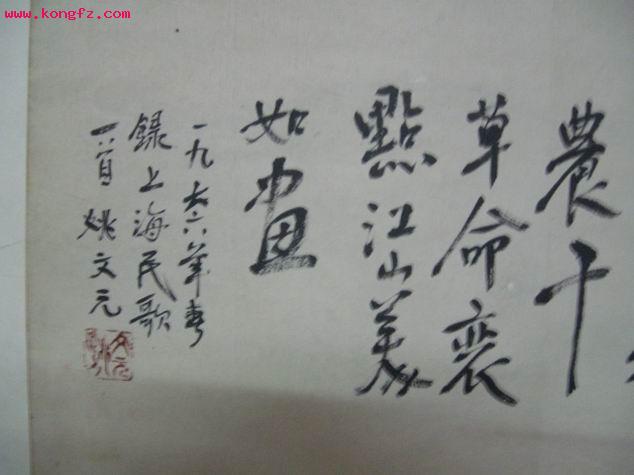 www.kongfz.com
農干
革命裝
點江山美
如畫
一九六六年春
錄上海民歌
一首 姚文元